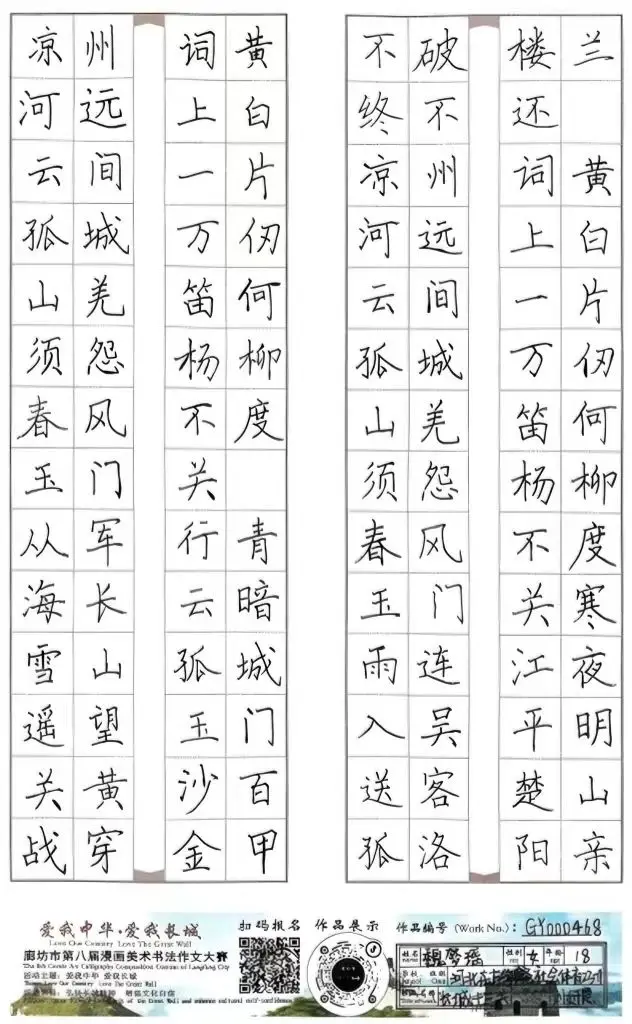 凉州词黄
河远上白
云间一片
孤城万仞
山羌笛何
须怨杨柳
春风不度
玉门关
从军行青
海长云暗
雪山孤城
遥望玉门
关黄沙百
战穿金甲
不破楼兰
终不还
凉州词黄
河远上白
云间一片
孤城万仞
山羌笛何
须怨杨柳
春风不度
玉门关寒
雨连江夜
入吴平明
送客楚山
孤洛阳亲
爱我中华·爱我长城
Love Our Country Love The Great Wall
廊坊市第八届漫画美术书法作文大赛
活动主题：爱我中华 爱我长城
扫码报名
作品展示
作品编号 (Work No.): GY000468
姓名
性别 女 年龄 18